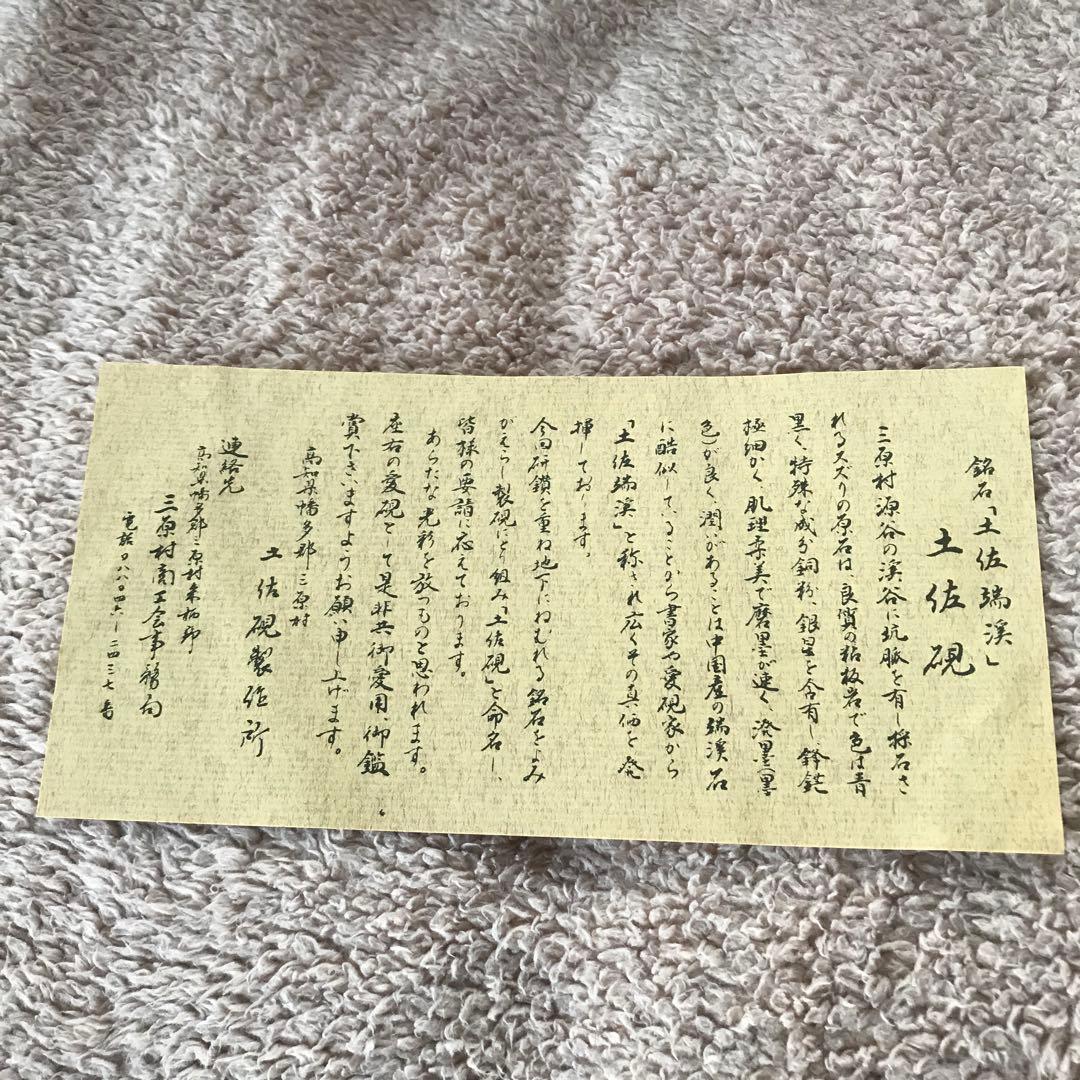 銘石「土佐端溪」
土佐硯
三原村源谷の溪谷に坑脈を有し採石さ
れるスズリの原石は良質の粘板岩で色は青
黒く、特殊な成分銅粉、銀星を含有し、鋒鋩
極細かく、肌理柔美で磨墨が速く、溌墨(墨
色)が良く、潤いがあることは中国産の端溪石
に酷似していることから書家や愛硯家から
「土佐端溪」と称され広くその真価を発
揮しております。
今回研鑽を重ね地下にねむれる銘石をよみ
がえらし製硯にとり組み「土佐硯」と命名し、
皆様の要請に応えております。
あらたな光彩を放つものと思われます。
座右の愛硯として是非共御愛用、御鑑
賞下さいますようお願い申し上げます。
高知県幡多郡三原村
土佐硯製作所
連絡先
高知県幡多郡三原村来栖野
三原村商工会事務局
電話〇八八〇四六-二四三七番